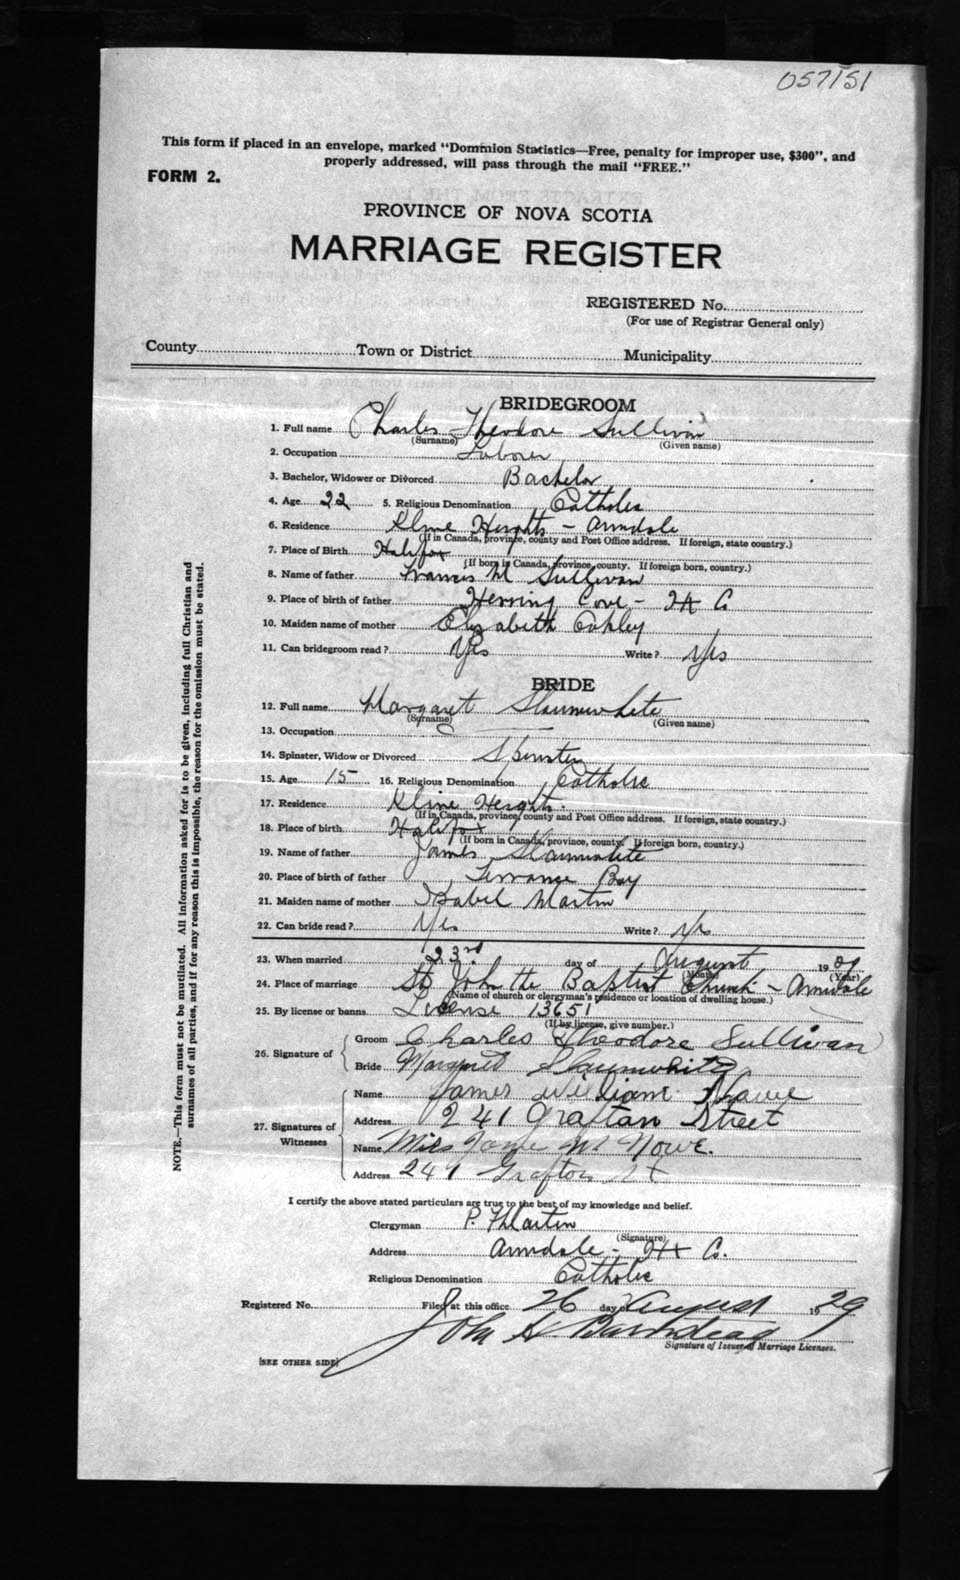 057151
This form if placed in an envelope, marked "Dominion Statistics—Free, penalty for improper use, $300", and
properly addressed, will pass through the mail "FREE."
FORM 2.
PROVINCE OF NOVA SCOTIA
MARRIAGE REGISTER
REGISTERED No.
(For use of Registrar General only)
County Town or District Municipality
BRIDEGROOM
1. Full name Charles Theodore Sullivan
(Surname) (Given name)
2. Occupation Laborer
3. Bachelor, Widower or Divorced Bachelor
4. Age 22 5. Religious Denomination Catholic
6. Residence Kline Heights - Armdale
(If in Canada, province, county and Post Office address. If foreign, state country.)
7. Place of Birth Halifax
(If born in Canada, province, county. If foreign born, country.)
8. Name of father Francis M Sullivan
9. Place of birth of father Herring Cove - Hx Co
10. Maiden name of mother Elizabeth Oakley
11. Can bridegroom read? Yes Write? Yes
BRIDE
12. Full name Margaret Slaunwhite
(Surname) (Given name)
13. Occupation
14. Spinster, Widow or Divorced Spinster
15. Age 15 16. Religious Denomination Catholic
17. Residence Kline Heights.
(If in Canada, province, county and Post Office address. If foreign, state country.)
18. Place of birth Halifax
(If born in Canada, province, county. If foreign born, country.)
19. Name of father James Slaunwhite
20. Place of birth of father Terrance Bay
21. Maiden name of mother Isabel Martin
22. Can bride read? Yes Write? Yes
23. When married 23rd day of August 1929
(Month) (Year)
24. Place of marriage St. John the Baptist Church - Armdale
(Name of church or clergyman's residence or location of dwelling house.)
25. By license or banns. License 13651
(If by license, give number.)
26. Signature of Groom Charles Theodore Sullivan
Bride Margaret Slaunwhite
27. Signatures of Witnesses
Name James William
Address 241 Grafton Street
Name M. Nowe.
Address 241 Grafton St
I certify the above stated particulars are true to the best of my knowledge and belief.
Clergyman P. Martin
(Signature)
Address Armdale - Hx Co.
Religious Denomination Catholic
Registered No. Filed at this office 26 day of August 1929
John A
Signature of Issuer of Marriage Licenses.
(SEE OTHER SIDE)
NOTE.—This form must not be mutilated. All information asked for is to be given, including full Christian and
surnames of all parties, and if for any reason this is impossible, the reason for the omission must be stated.